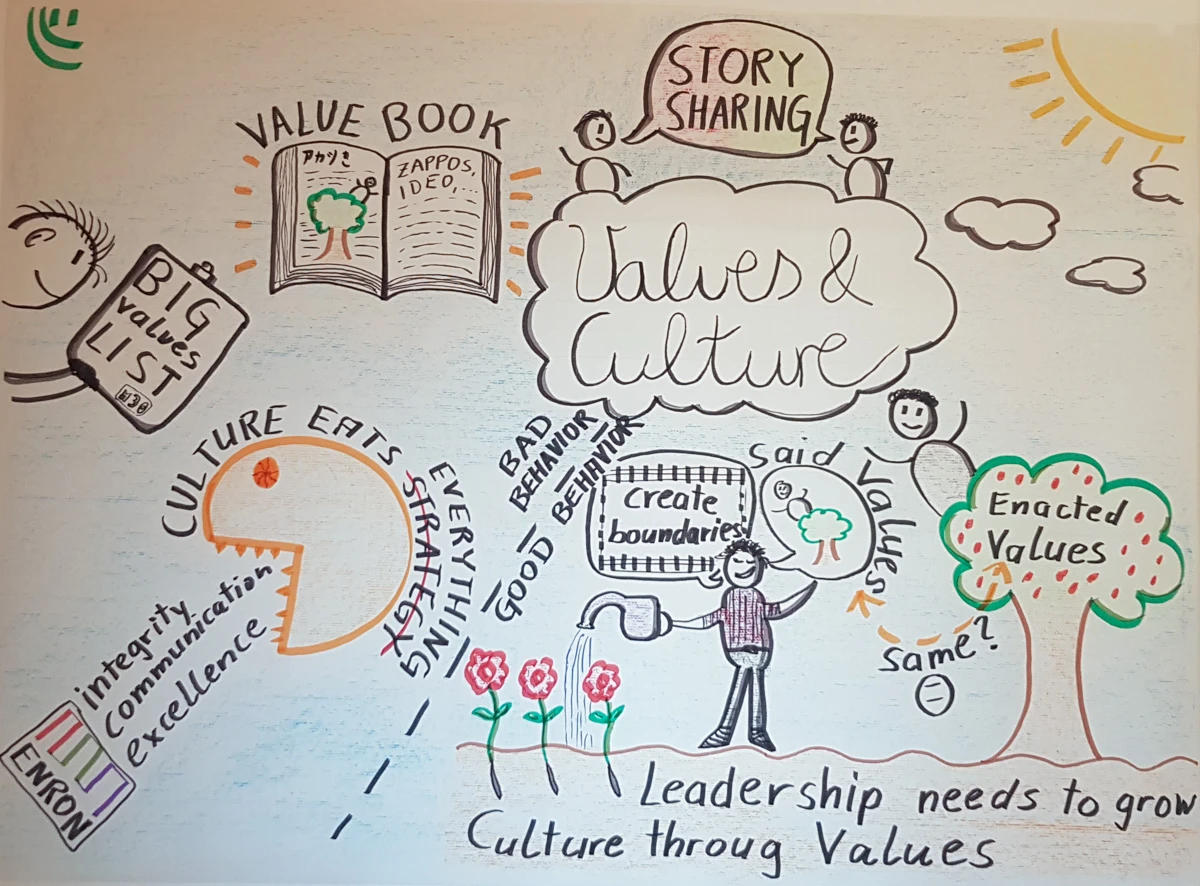 STORY
SHARING
VALUE BOOK
アカツき
ZAPPOS,
IDEO,...
Values &
Culture
BIG
values
LIST
CULTURE EATS
STRATEGY
EVERYTHING
BAD
BEHAVIOR
GOOD BEHAVIOR
create
boundaries
said Values
Enacted
Values
same?
integrity
Communication
excellence
ENRON
Leadership needs to grow
Culture throug Values